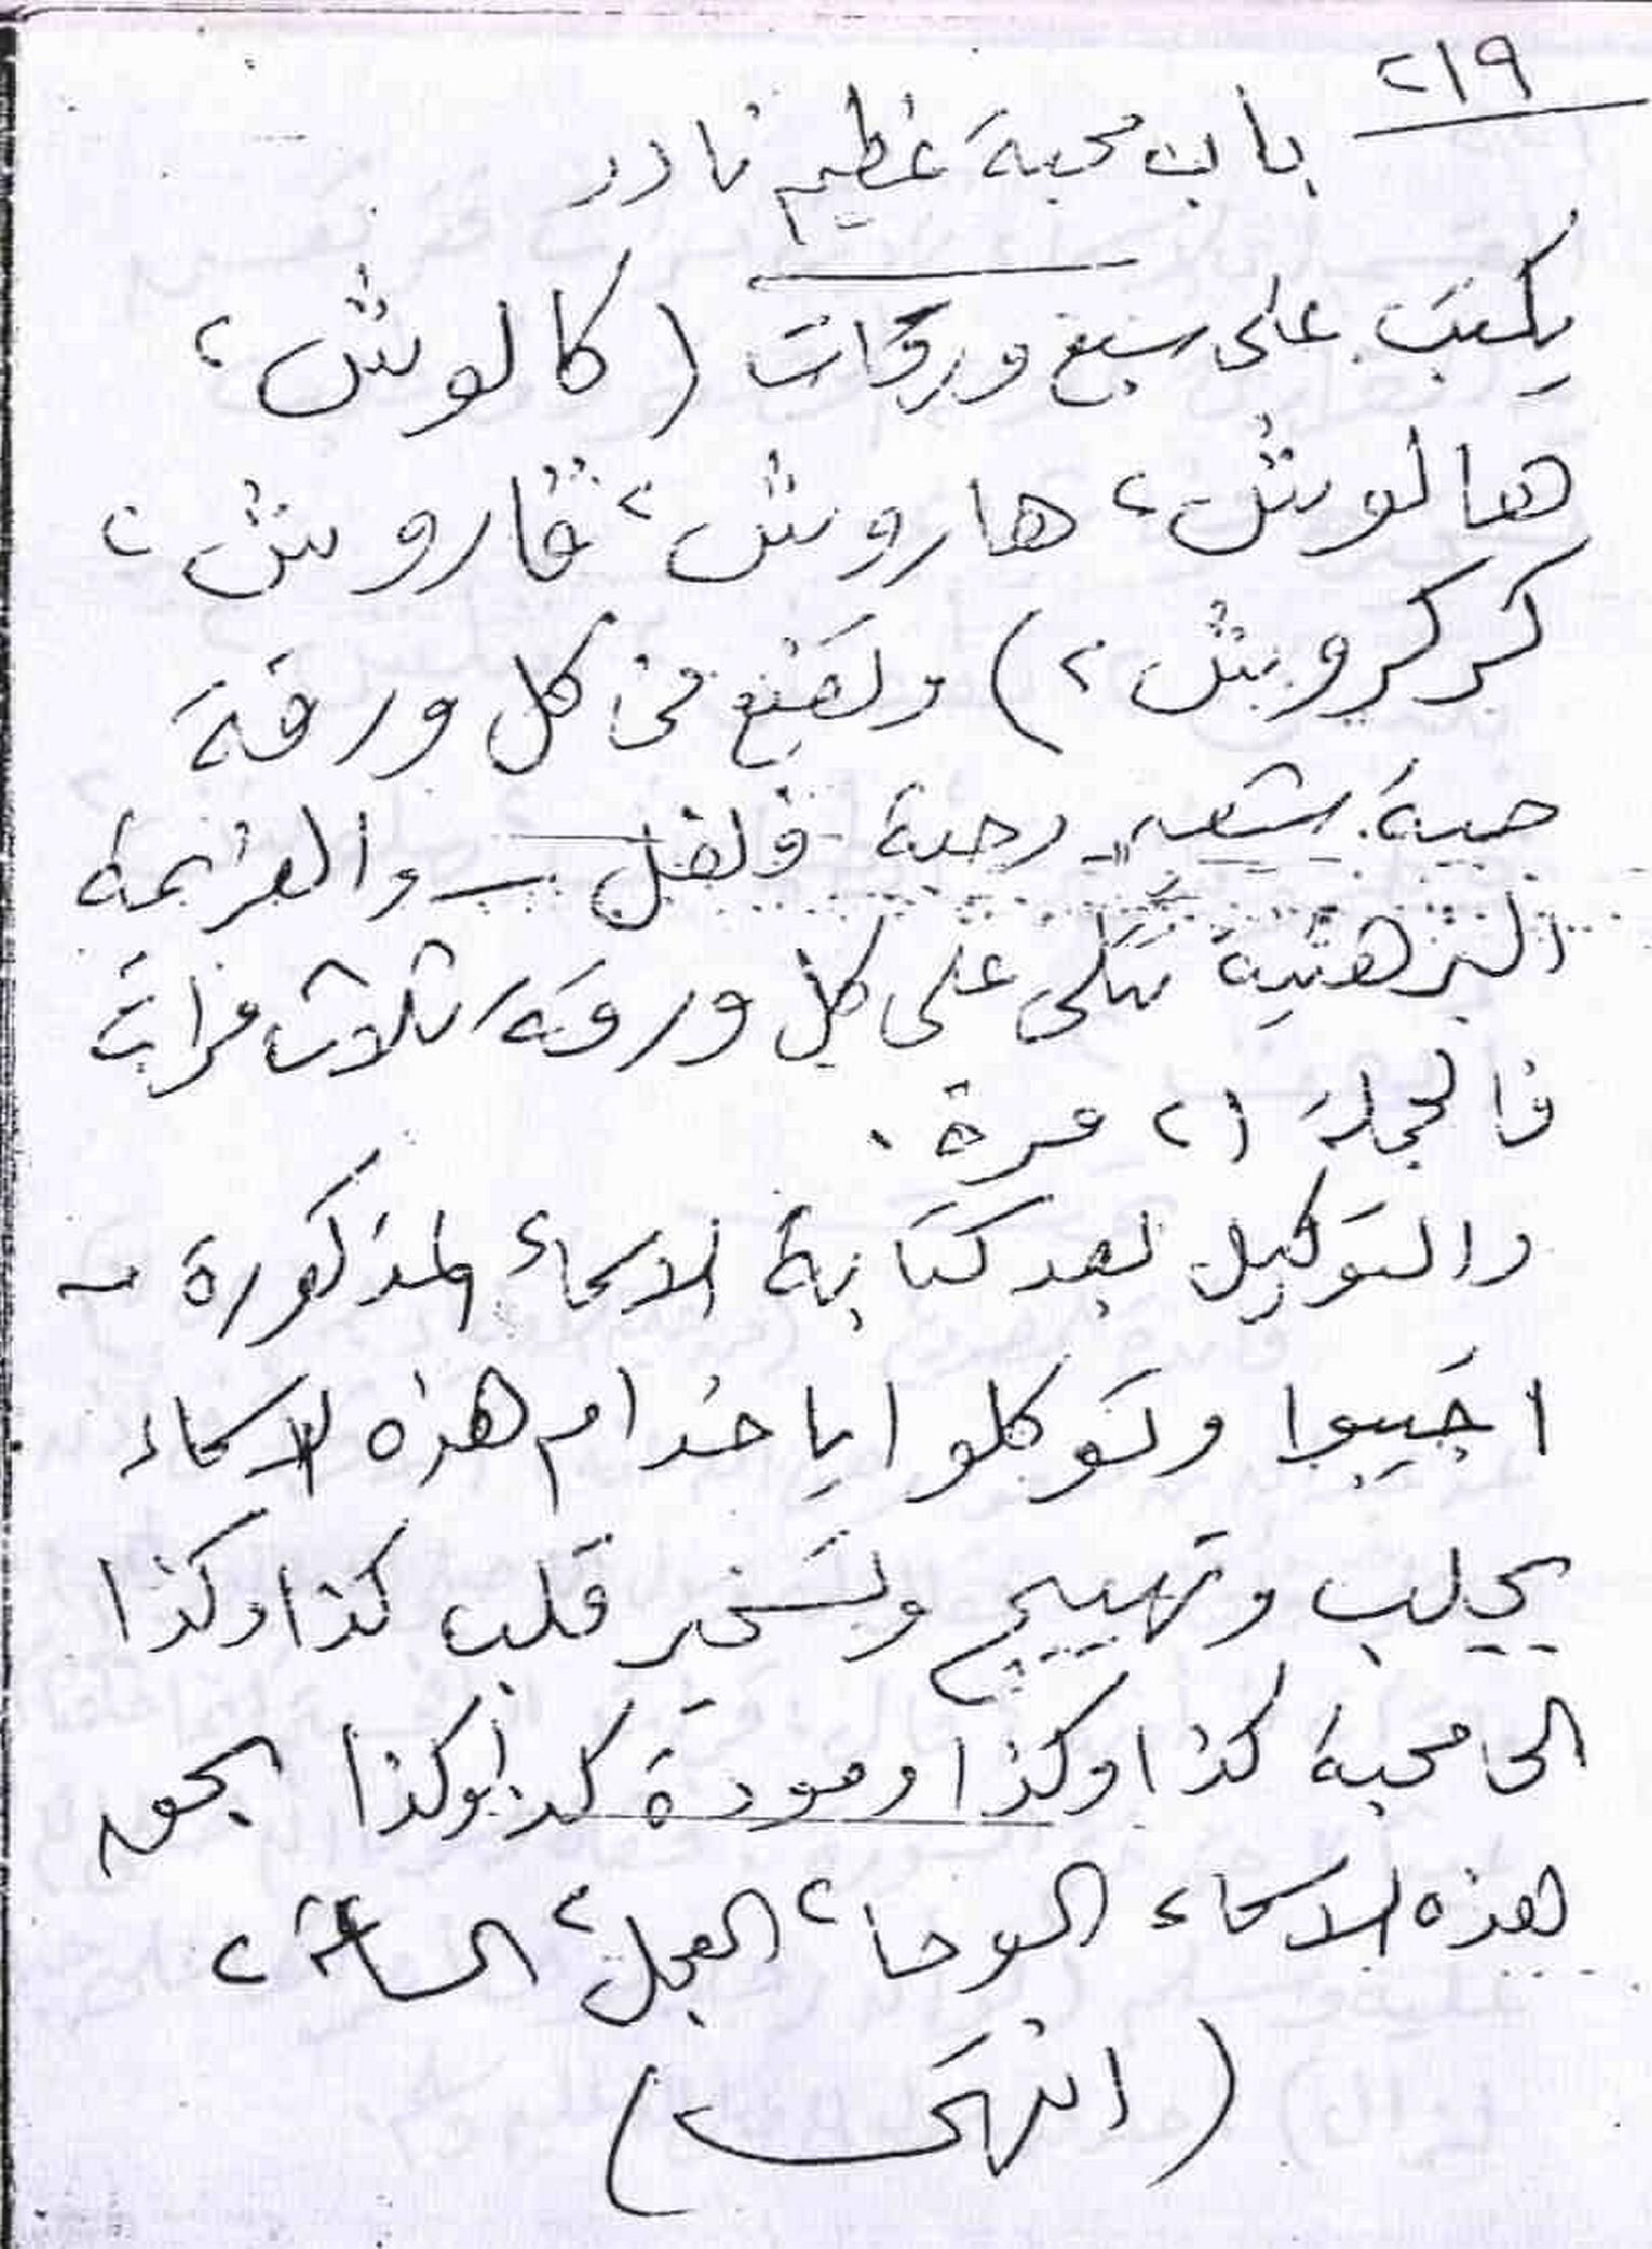 ٢١٩
باب محبة عظيم نادر
يكتب على سبع ورقات (كالوش ٢
هالوش ٢ هاروش ٢ قاروش ٢
كركروش ٢) وتضع في كل ورقة
حبة شعير وحبة فلفل — والعزيمة
البرهتية تتلى على كل ورقة ثلاث مرات
فالجملة ٢١ مرة .
والتوكيل بعد كتابة الاسماء المذكورة -
اجيبوا وتوكلوا يا خدام هذه الاسماء
بجلب وتهييج وتسخير قلب كذا وكذا
الى محبة كذا وكذا ومودة كذا وكذا بحق
هذه الاسماء الوحا ٢ العجل ٢ الساعة ٢
(انتهى)